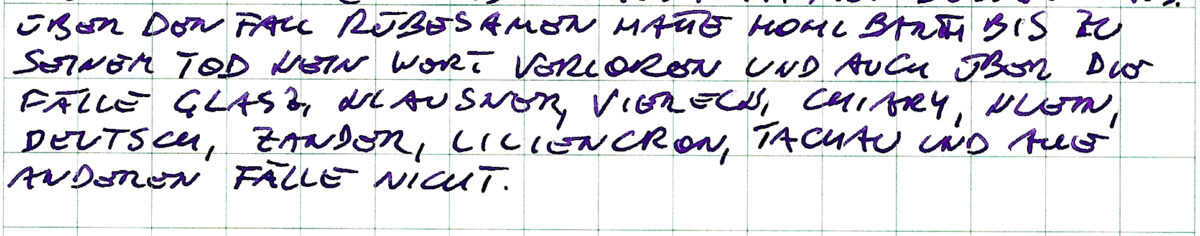 ÜBER DEN FALL RÜBESAMEN HATTE HOHLBARTH BIS ZU
SEINEM TOD KEIN WORT VERLOREN UND AUCH ÜBER DIE
FÄLLE GLASZ, KLAUSNER, VIERECK, CHIARY, KLEIN,
DEUTSCH, ZANDER, LILIENCRON, TACHAU UND ALLE
ANDEREN FÄLLE NICHT.